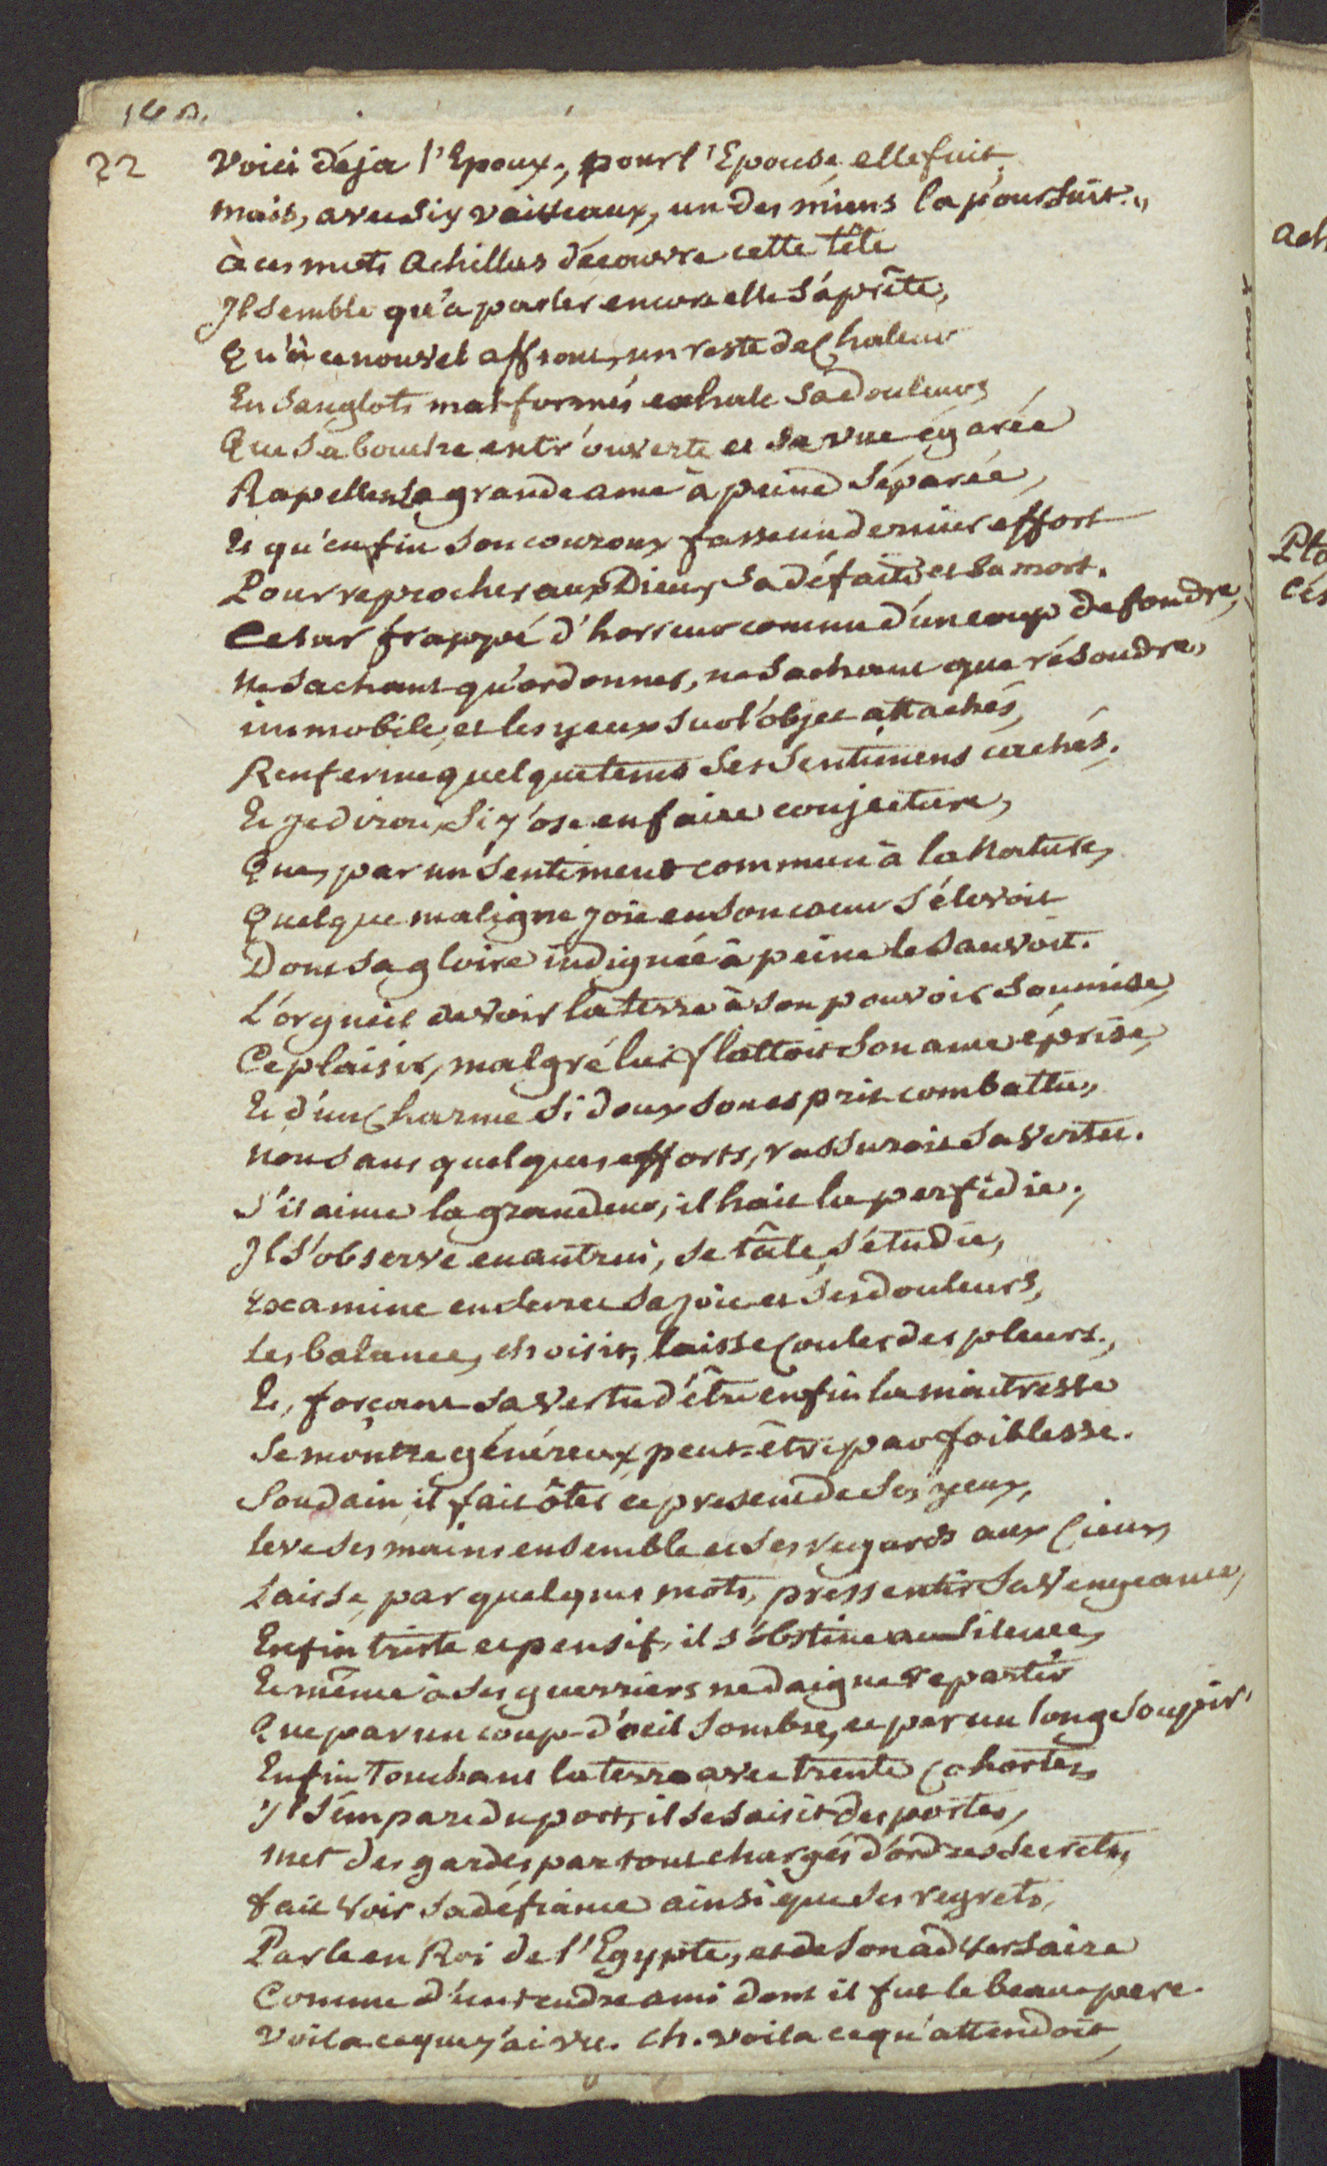 22
Voici déja l'Epoux, pour l'Epouse, elle fuit,
mais, avec six vaisseaux, un des miens la poursuit.,,
à ces mots Achillas découvre cette tête
Il semble qu'à parler encore elle s'aprête,
Qu'à ce nouvel affront, un reste de Chaleur
En sanglots mal formés exhale sa douleur,
Que sa bouche entr'ouverte et sa vue égarée
Rapellent sa grande ame à peine séparée,
Et qu'enfin son couroux fasse un dernier effort
Pour reprocher aux Dieux sa défaite et sa mort.
Cesar frappé d'horreur comme d'un coup de foudre,
Ne sachant qu'ordonner, ne sachant que résoudre,
immobile, et les yeux sur l'objet attachés,
Renferme quelque tems ses sentimens cachés.
Et je dirai, si j'ose en faire conjecture,
Que, par un sentiment commun à la Nature,
Quelque maligne joie en son coeur s'élevoit
Dont sa gloire indignée à peine le sauvoit.
L'orgueil de voir la terre à son pouvoir soumise,
Ce plaisir, malgré lui flattoit son ame éprise,
Et d'un Charme si doux son esprit combattu,
Non sans quelques efforts, rassuroit sa vertu.
S'il aime la grandeur, il hait la perfidie;
Il s'observe en autrui, se tâte, s'étudie,
Examine en secret sa joie et ses douleurs,
Les balance, choisit, laisse Couler des pleurs;
Et, forçant sa vertu d'être enfin la maitresse
Se montre généreux peut-être par foiblesse.
Soudain il fait ôter ce present de ses yeux,
leve ses mains ensemble et ses regards aux Cieux,
Laisse, par quelques mots, pressentir sa vengeance,
Enfin triste et pensif, il s'obstine au silence,
Et même à ses guerriers ne daigne repartir
Que par un coup-d'oeil sombre, et par un long soupir.
Enfin Touchant la terre avec trente Cohortes,
Il s'empare du port, il se saisit des portes,
Met des gardes par tout chargés d'ordres secrets,
fait voir sa défiance ainsi que ses regrets,
Parle en Roi de l'Egypte, et de son adversaire
Comme d'un tendre ami dont il fut le beau-pere.
Voila ce que j'ai vu. Ch. voila ce qu'attendoit,
ach
Pto